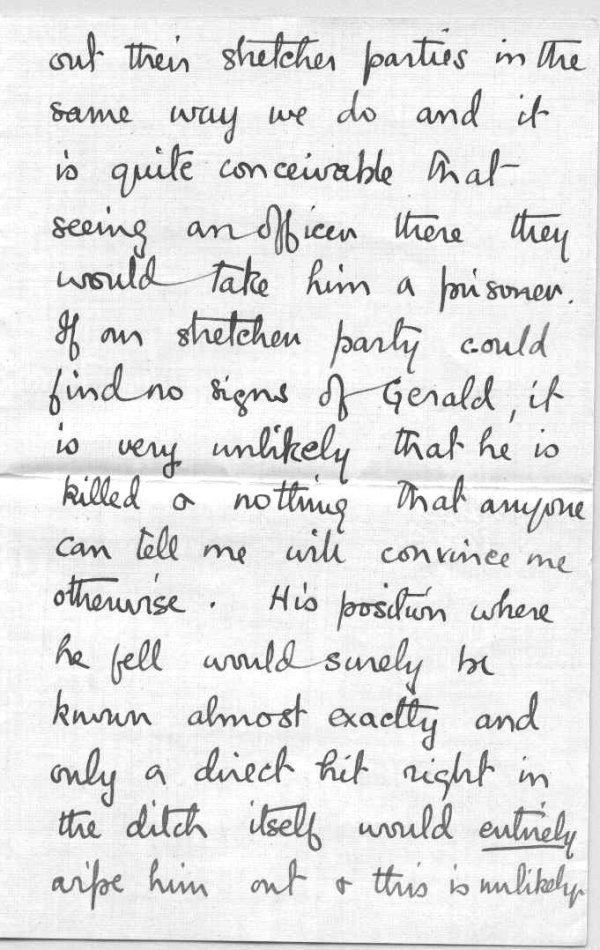 out their stretcher parties in the
same way we do and it
is quite conceivable that
seeing an officer there they
would take him a prisoner.
If our stretcher party could
find no signs of Gerald, it
is very unlikely that he is
killed & nothing that anyone
can tell me will convince me
otherwise. His position where
he fell would surely be
known almost exactly and
only a direct hit right in
the ditch itself would entirely
wipe him out & this is unlikely.